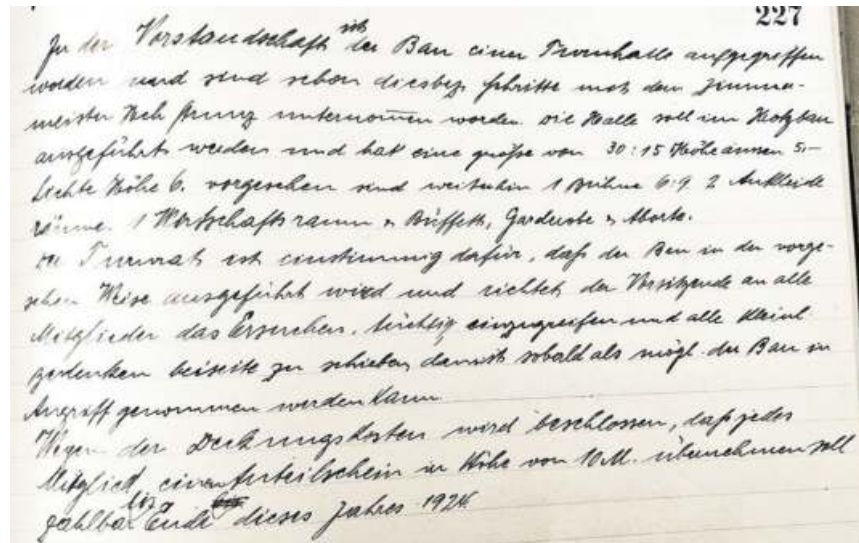 227
In der Vorstandschaft ist der Bau einer Turnhalle aufgegriffen
worden und sind schon diesbez. Schritte mit dem Zimmer-
meister unternommen worden. Die Halle soll im Holzbau
ausgeführt werden und hat eine größe von 30:15 Höhe aussen 5.-
lichte Höhe 6. vorgesehen sind weiterhin 1 Bühne 6:9. 2 Ankleide
räume. 1 Wirtschaftsraum u Büffett, Garderobe u Aborte.
Der Turnrat ist einstimmig dafür, daß der Bau in der vorge-
sehen Weise ausgeführt wird und richtet der Vorsitzende an alle
Mitglieder das Ersuchen, tüchtig einzugreifen und alle kleinl.
gedenken beiseite zu schieben damit sobald als mögl. der Bau in
Angriff genommen werden kann.
Wegen der Deckungskosten wird beschlossen, daß jedes
Mitglied einen Anteilschein in Höhe von 10 M. übernehmen soll
zahlbar bis Ende dieses Jahres 1924.